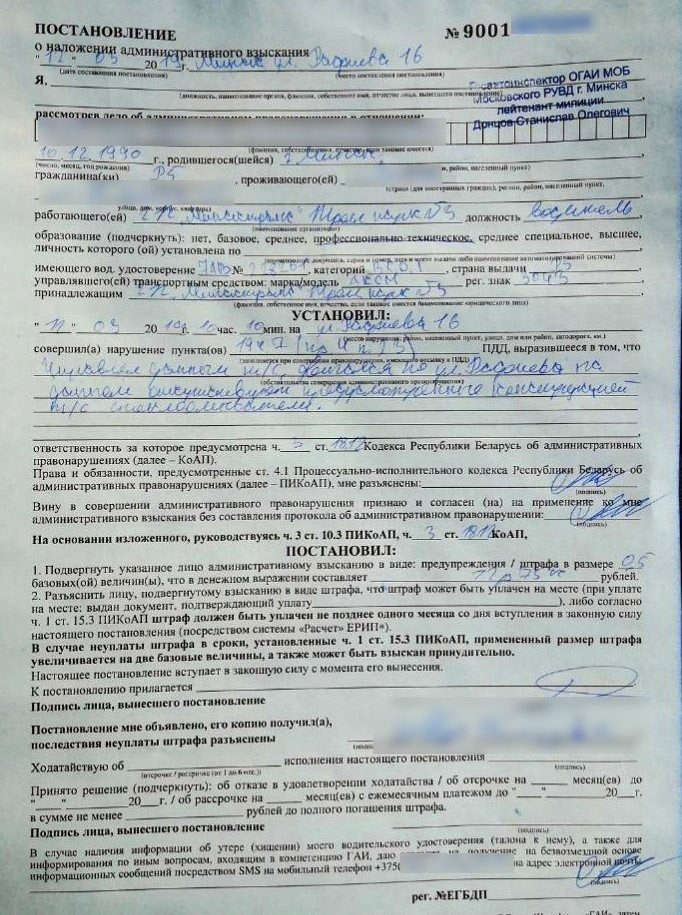 ПОСТАНОВЛЕНИЕ
№ 9001
о наложении административного взыскания
" 12 " 03 20 19 г. Минск ул. Рафиева 16
(дата составления постановления) (место составления постановления)
Я,
(должность, наименование органа, фамилия, собственное имя, отчество лица, вынесшего постановление)
Госавтоинспектор ОГАИ МОБ
Московского РУВД г. Минска
лейтенант милиции
Донцов Станислав Олегович
рассмотрев дело об административном правонарушении в отношении:
(фамилия, собственное имя, отчество, если таковое имеется)
10.12.1990 г., родившегося(шейся) г. Минск
(число, месяц, год рождения) район, населенный пункт)
гражданина(ки) РБ , проживающего(ей)
(страна (для иностранных граждан), регион, район, населенный пункт,
улица, дом, корпус, квартира)
работающего(ей) должность водитель
(наименование организации)
образование (подчеркнуть): нет, базовое, среднее, профессионально-техническое, среднее специальное, высшее,
личность которого (ой) установлена по
имеющего вод. удостоверение № , категорий , страна выдачи РБ
управлявшего(ей) транспортным средством: марка/модель рег. знак
принадлежащим
(фамилия, собственное имя, отчество, если таковое имеется/наименование юридического лица)
УСТАНОВИЛ:
03 20 19 г. 10 час. 10 мин. на ул. Рафиева 16
совершил(а) нарушение пункта(ов) ПДД, выразившееся в том, что
Управлял данным т/с двигался по ул. Рафиева на
(обстоятельства совершения административного правонарушения)
данном отсутствуют предусмотренные конструкцией
т/с стеклоомыватели.
ответственность за которое предусмотрена ч. 3 ст. 18.12 Кодекса Республики Беларусь об административных
правонарушениях (далее – КоАП).
Права и обязанности, предусмотренные ст. 4.1 Процессуально-исполнительного кодекса Республики Беларусь об
административных правонарушениях (далее – ПИКоАП), мне разъяснены:
(подпись)
Вину в совершении административного правонарушения признаю и согласен (на) на применение ко мне
административного взыскания без составления протокола об административном правонарушении:
(подпись)
На основании изложенного, руководствуясь ч. 3 ст. 10.3 ПИКоАП, ч. 3 ст. 18.12 КоАП,
ПОСТАНОВИЛ:
1. Подвергнуть указанное лицо административному взысканию в виде: предупреждения / штрафа в размере 0,5
базовых(ой) величин(ы), что в денежном выражении составляет рублей.
2. Разъяснить лицу, подвергнутому взысканию в виде штрафа, что штраф может быть уплачен на месте (при уплате
на месте: выдан документ, подтверждающий уплату ), либо согласно
ч. 1 ст. 15.3 ПИКоАП штраф должен быть уплачен не позднее одного месяца со дня вступления в законную силу
настоящего постановления (посредством системы «Расчет» ЕРИП*).
В случае неуплаты штрафа в сроки, установленные ч. 1 ст. 15.3 ПИКоАП, примененный размер штрафа
увеличивается на две базовые величины, а также может быть взыскан принудительно.
Настоящее постановление вступает в законную силу с момента его вынесения.
К постановлению прилагается
Подпись лица, вынесшего постановление
Постановление мне объявлено, его копию получил(а),
последствия неуплаты штрафа разъяснены
Ходатайствую об исполнения настоящего постановления
(отсрочке / рассрочке (от 1 до 6 мес.)) (подпись)
Принято решение (подчеркнуть): об отказе в удовлетворении ходатайства / об отсрочке на месяц(ев) до
" " 20 г. / об рассрочке на месяц(ев) с ежемесячным платежом до " " 20 г.
в сумме не менее рублей до полного погашения штрафа.
Подпись лица, вынесшего постановление
(подпись)
В случае наличия информации об утере (хищении) моего водительского удостоверения (талона к нему), а также для
информирования по иным вопросам, входящим в компетенцию ГАИ, даю на получение на безвозмездной основе
информационных сообщений посредством SMS на мобильный телефон +375( на адрес электронной почты
(подпись)
рег. №ЕГБДП